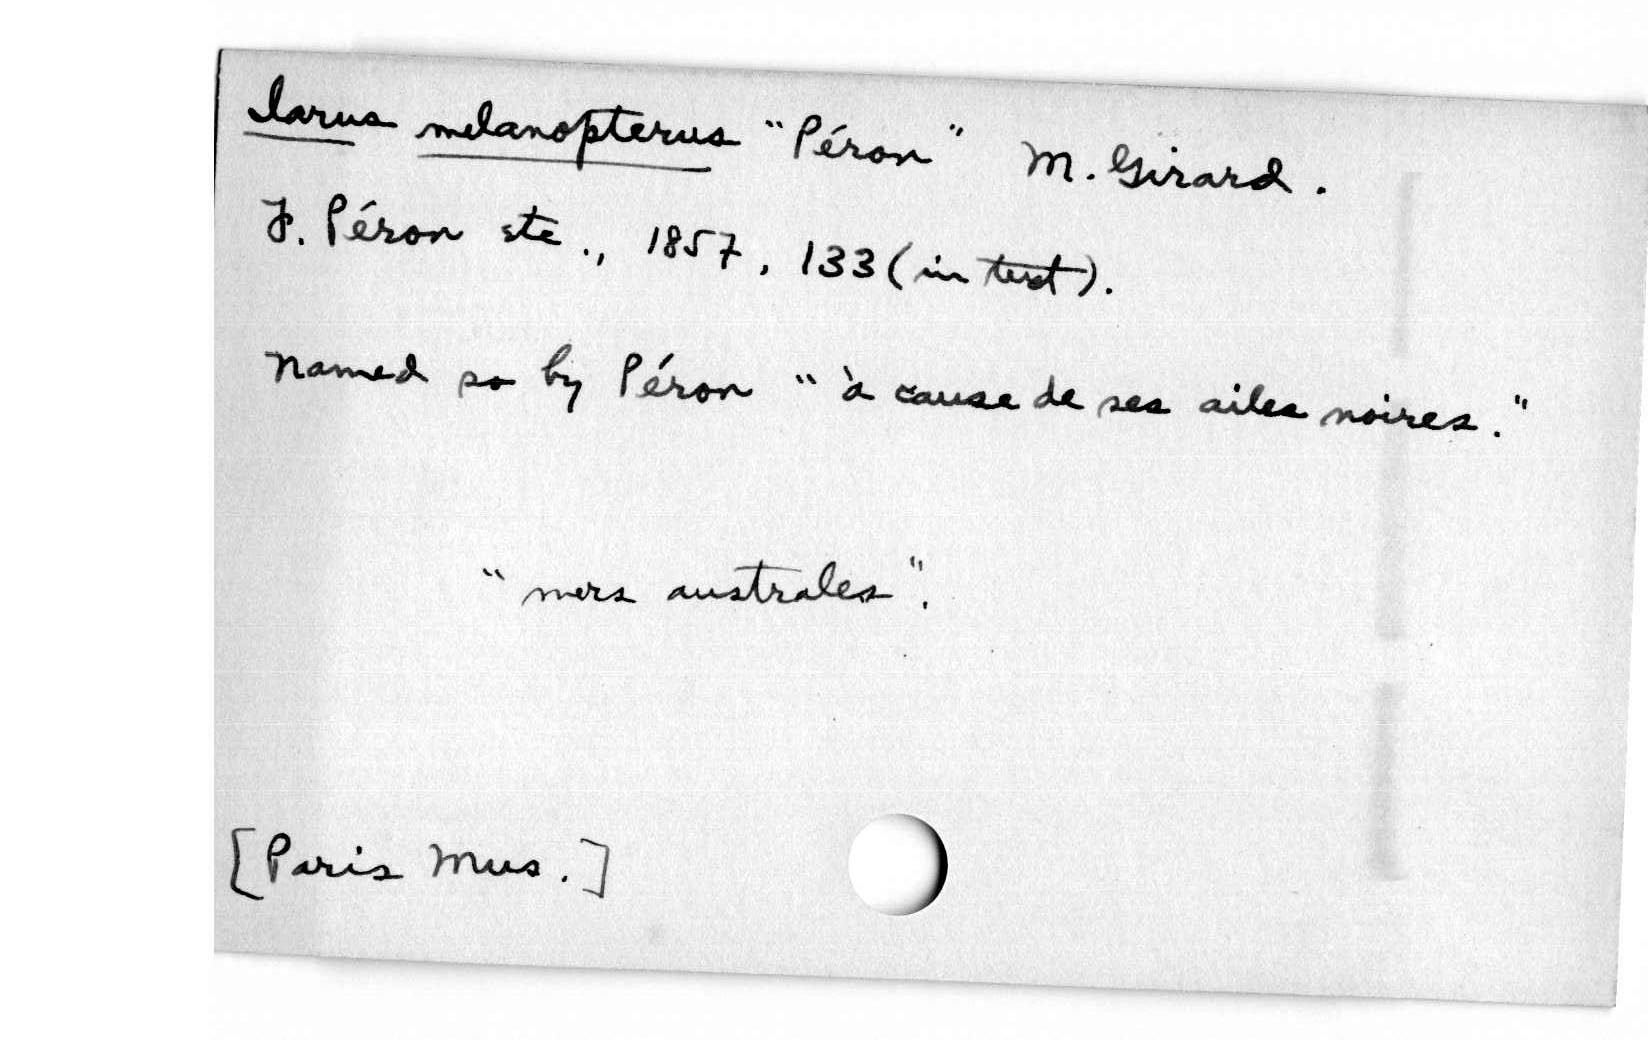 Larus melanopterus "Péron" M. Girard.
F. Péron etc., 1857, 133 (in text).
Named so by Péron "à cause de ses ailes noires."
"mers australes".
[Paris Mus.]